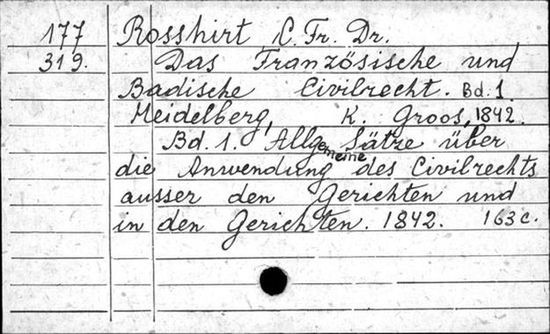 177 Rosshirt C. Fr. Dr.
319. Das Französische und
Badische Civilrecht. Bd. 1
Heidelberg, K. Groos, 1842.
Bd. 1. Allgemeine Sätze über
die Anwendung des Civilrechts
ausser den Gerichten und
in den Gerichten. 1842. 163 c.